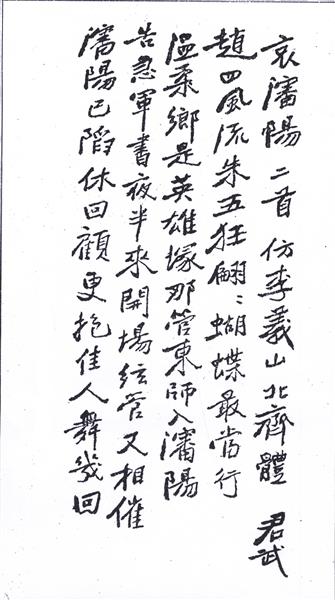 哀瀋陽二首仿李義山北齊體　君武
趙四風流朱五狂翩〻蝴蝶最當行
溫柔鄉是英雄塚那管東師入瀋陽
告急軍書夜半來開場絃管又相催
瀋陽已陷休回顧更抱佳人舞幾回